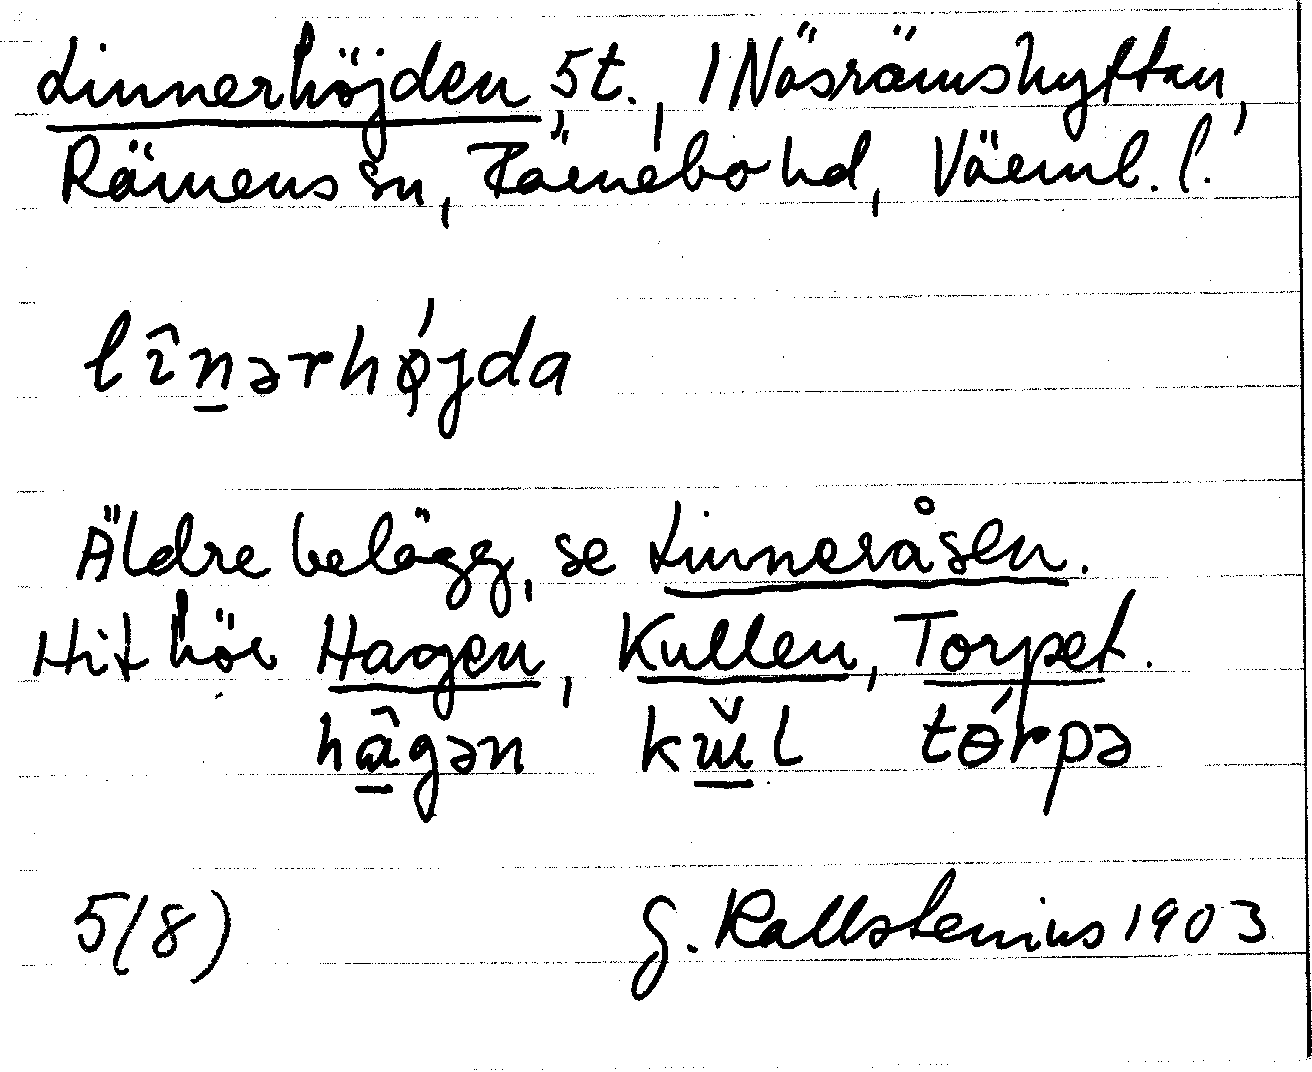 Linnerhöjden, 5 t., 1 Näsrämshyttan,
Rämens sn, Färnebo hd, Värml. l.
lîn̲ərhǿjda
Äldre belägg, se Linneråsen.
Hit hör Hagen, Kullen, Torpet.
hâ̲gən kɯ̲̌l tɵ́rpə
5(8) G. Kallstenius 1903